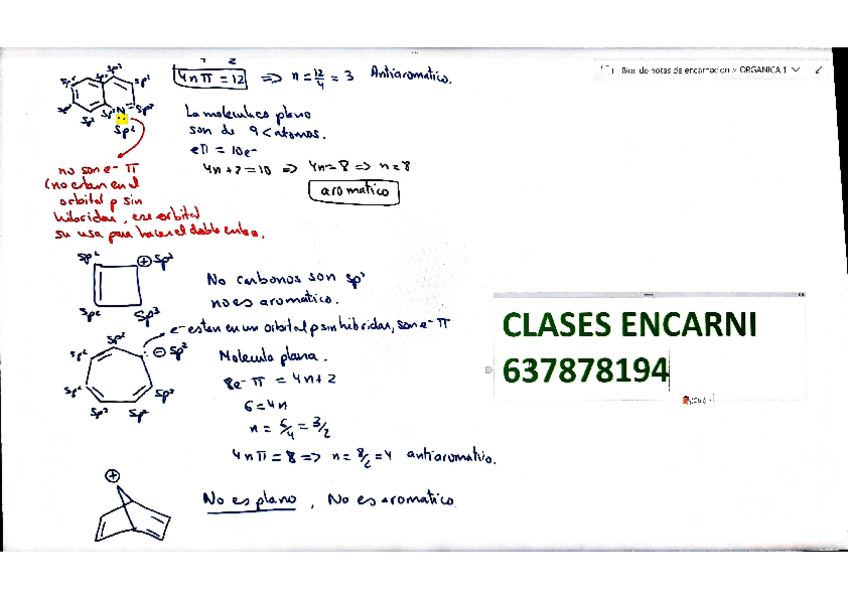 4nπ = 12 ⇒ n = 12/4 = 3 Antiaromatico.
Bloc de notas de encarnacion > ORGANICA 1
sp² sp² sp² sp² sp² sp² N sp²
sp²
La molecula es plana
son de 9 < atomos.
eπ = 10e-
4n+2=10 ⇒ 4n=8 ⇒ n=8
aromatico
no son e- π
(no estan en el
orbital p sin
hibridar, ese orbital
su usa para hacer el doble enlace.
sp² ⊕ sp²
sp² sp³
No carbonos son sp²
no es aromatico.
e- estan en un orbital p sin hibridar, son e- π
sp² sp² ⊖ sp²
sp² sp²
sp² sp²
Molecula plana.
8e- π = 4n+2
6=4n
n = 6/4 = 3/2
4nπ = 8 ⇒ n = 8/2 = 4 antiaromatico.
⊕
No es plano, No es aromatico.
CLASES ENCARNI
637878194